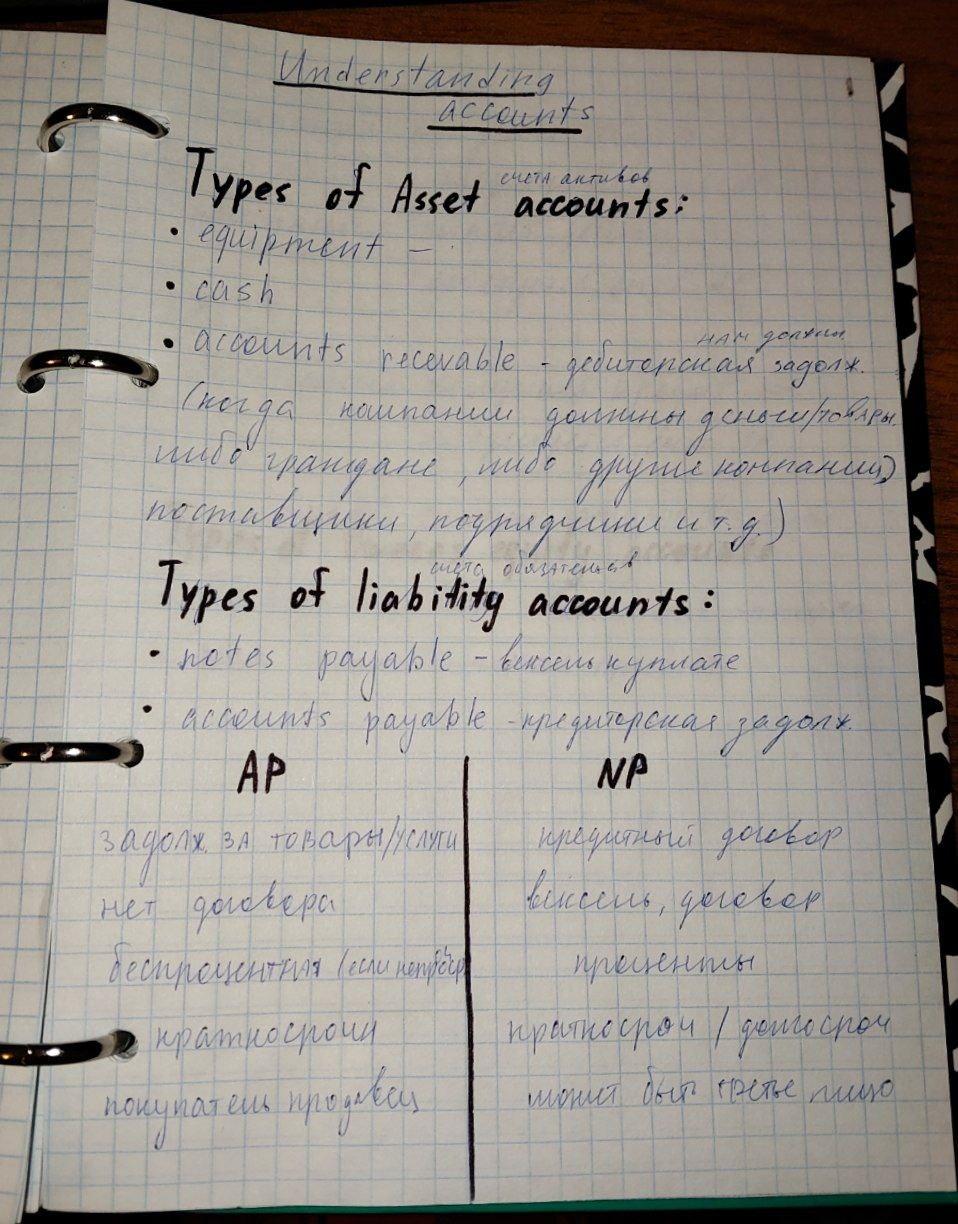 Understanding
accounts
счета активов
Types of Asset accounts:
• equipment –
• cash
нам должны
• accounts recevable - дебиторская задолж.
(когда компании должны деньги/товары
либо граждане, либо другие компании,
поставщики, подрядчики и т.д.)
счета обязательств
Types of liability accounts:
• notes payable - вексель к уплате
• accounts payable - кредиторская задолж.
AP NP
задолж. за товары/услуги кредитный договор
нет договора вексель, договор
беспроцентная (если не проценты
кратносрочн кратносроч / долгосроч
покупатель продавец может быть третье лицо